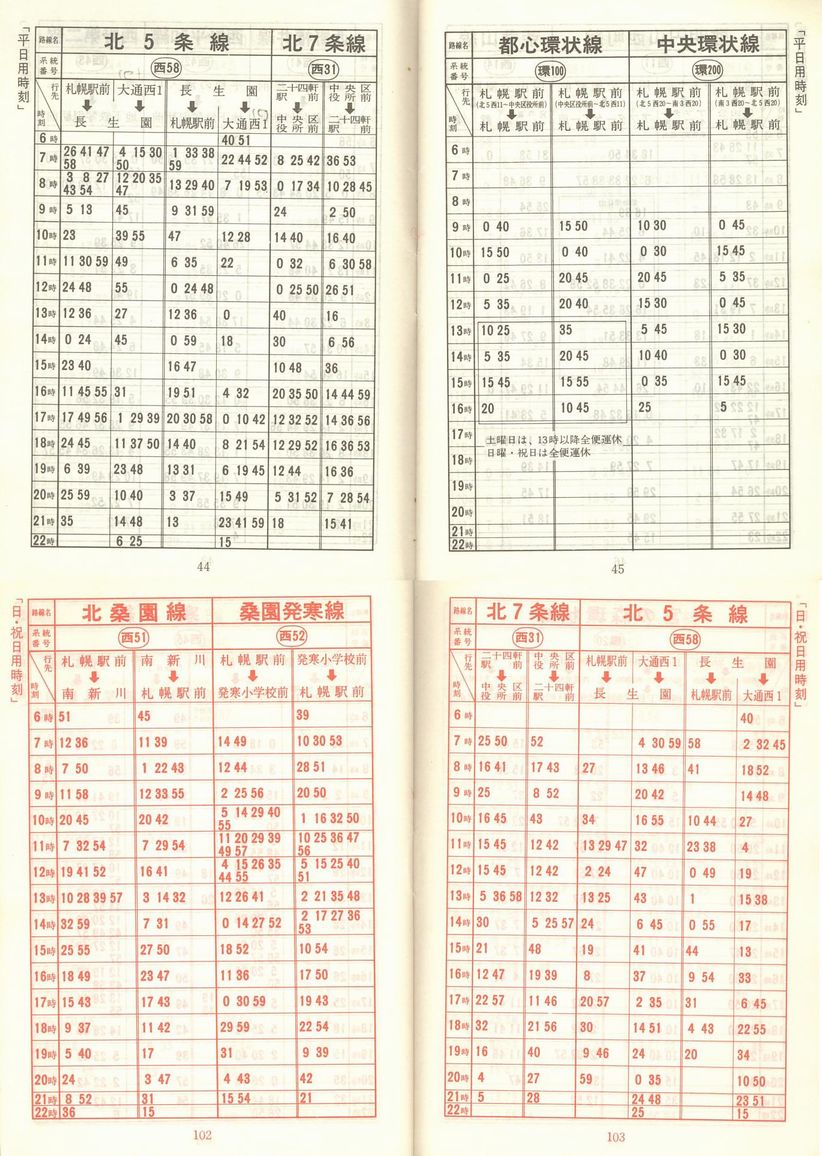 「平日用時刻」
路線名 北5条線 北7条線
系統番号 西58 西31
行先 時刻 札幌駅前→長生園 大通西1→長生園 長生園→札幌駅前 長生園→大通西1 二十四軒駅前→中央区役所前 中央区役所前→二十四軒駅前
6時 40 51
7時 26 41 47 58 4 15 30 50 1 33 38 59 22 44 52 8 25 42 36 53
8時 3 8 27 43 54 12 20 35 47 13 29 40 7 19 53 0 17 34 10 28 45
9時 5 13 45 9 31 59 24 2 50
10時 23 39 55 47 12 28 14 40 16 40
11時 11 30 59 49 6 35 22 0 32 6 30 58
12時 24 48 55 0 24 48 0 25 50 26 51
13時 12 36 27 12 36 0 40 16
14時 0 24 45 0 59 18 30 6 56
15時 23 40 16 47 10 48 36
16時 11 45 55 31 19 51 4 32 20 35 50 14 44 59
17時 17 49 56 1 29 39 20 30 58 0 10 42 12 32 52 14 36 56
18時 24 45 11 37 50 14 40 8 21 54 12 29 52 16 36 53
19時 6 39 23 48 13 31 6 19 45 12 44 16 36
20時 25 59 10 40 3 37 15 49 5 31 52 7 28 54
21時 35 14 48 13 23 41 59 18 15 41
22時 6 25 15
44
「平日用時刻」
路線名 都心環状線 中央環状線
系統番号 環100 環200
行先 時刻 札幌駅前(北5西11~中央区役所前)→札幌駅前 札幌駅前(中央区役所前~北5西11)→札幌駅前 札幌駅前(北5西20~南3西20)→札幌駅前 札幌駅前(南3西20~北5西20)→札幌駅前
6時
7時
8時
9時 0 40 15 50 10 30 0 45
10時 15 50 0 40 0 30 15 45
11時 0 25 20 45 20 45 5 35
12時 5 35 20 40 15 30 0 45
13時 10 25 35 5 45 15 30
14時 5 35 20 45 10 40 0 30
15時 15 45 15 55 0 35 15 45
16時 20 10 45 25 5
17時 土曜日は、13時以降全便運休
18時 日曜・祝日は全便運休
19時
20時
21時
22時
45
「日・祝日用時刻」
路線名 北桑園線 桑園発寒線
系統番号 西51 西52
行先 時刻 札幌駅前→南新川 南新川→札幌駅前 札幌駅前→発寒小学校前 発寒小学校前→札幌駅前
6時 51 45 39
7時 12 36 11 39 14 49 10 30 53
8時 7 50 1 22 43 12 44 28 51
9時 11 58 12 33 55 2 25 56 20 50
10時 20 45 20 42 5 14 29 40 55 1 16 32 50
11時 7 32 54 7 29 54 11 20 29 39 49 57 10 25 36 47 56
12時 19 41 52 16 41 4 15 26 35 44 55 5 15 25 40 51
13時 10 28 39 57 3 14 32 12 26 41 2 21 35 48
14時 32 59 7 31 0 14 27 52 2 17 27 36 53
15時 25 55 27 50 18 52 10 54
16時 18 49 23 47 11 36 17 50
17時 15 43 17 43 0 30 59 19 43
18時 9 37 11 42 29 59 22 54
19時 5 40 17 31 9 39
20時 24 3 47 4 43 42
21時 8 52 31 15 54 21
22時 36 15
102
「日・祝日用時刻」
路線名 北7条線 北5条線
系統番号 西31 西58
行先 時刻 二十四軒駅前→中央区役所前 中央区役所前→二十四軒駅前 札幌駅前→長生園 大通西1→長生園 長生園→札幌駅前 長生園→大通西1
6時 40
7時 25 50 52 4 30 59 58 2 32 45
8時 16 41 17 43 27 13 46 41 18 52
9時 25 8 52 20 42 14 48
10時 16 45 43 34 16 55 10 44 27
11時 15 45 12 42 13 29 47 32 23 38 4
12時 15 45 12 42 2 24 47 0 49 19
13時 5 36 58 12 32 13 25 43 1 15 38
14時 30 5 25 57 24 6 45 0 55 17
15時 21 48 19 41 44 13
16時 12 47 19 39 8 37 9 54 33
17時 22 57 11 46 20 57 2 35 31 6 45
18時 32 21 56 30 14 51 4 43 22 55
19時 16 40 9 46 24 20 34
20時 4 27 59 0 35 10 50
21時 5 28 24 48 23 51
22時 25 15
103